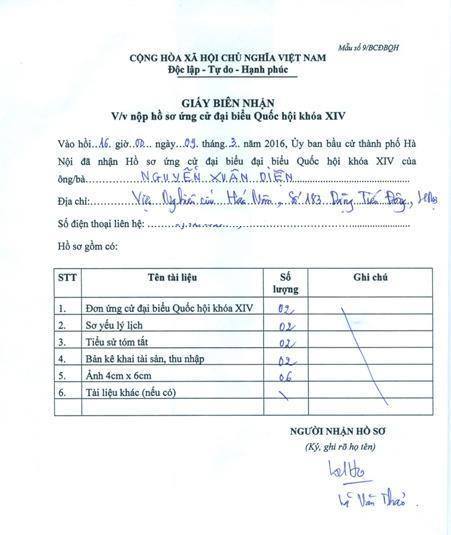 Mẫu số 9/BCĐBQH
CỘNG HÒA XÃ HỘI CHỦ NGHĨA VIỆT NAM
Độc lập - Tự do - Hạnh phúc
GIẤY BIÊN NHẬN
V/v nộp hồ sơ ứng cử đại biểu Quốc hội khóa XIV
Vào hồi..16. giờ..00.. ngày..09.. tháng.3. năm 2016, Ủy ban bầu cử thành phố Hà
Nội đã nhận Hồ sơ ứng cử đại biểu đại biểu Quốc hội khóa XIV của
ông/bà......NGUYỄN XUÂN DIỆN......
Địa chỉ:......Viện Nghiên cứu Hán Nôm, Số 183 Đặng Tiến Đông,
Số điện thoại liên hệ:
Hồ sơ gồm có:
STT Tên tài liệu Số lượng Ghi chú
1. Đơn ứng cử đại biểu Quốc hội khóa XIV 02
2. Sơ yếu lý lịch 02
3. Tiểu sử tóm tắt 02
4. Bản kê khai tài sản, thu nhập 02
5. Ảnh 4cm x 6cm 06
6. Tài liệu khác (nếu có) \
NGƯỜI NHẬN HỒ SƠ
(Ký, ghi rõ họ tên)
Lê Văn Thảo